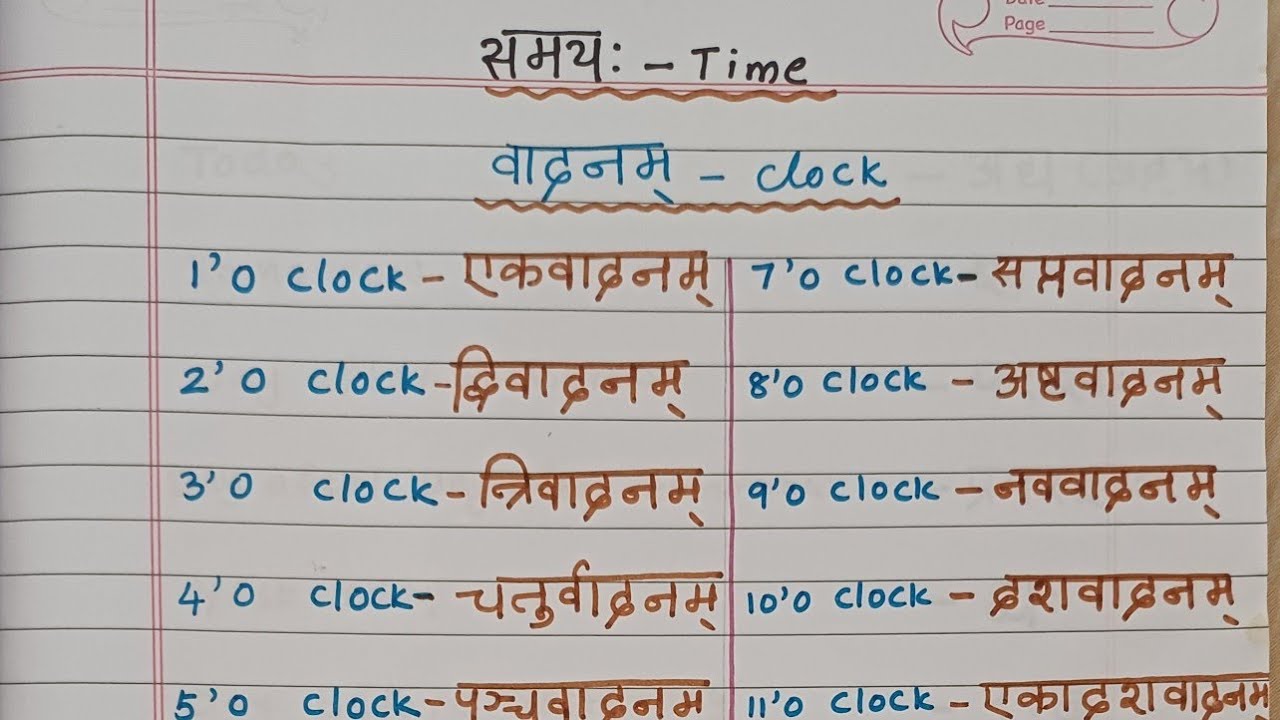 Date
Page
समयः - Time
वादनम् - clock
1'0 clock - एकवादनम्
2'0 clock - द्विवादनम्
3'0 clock - त्रिवादनम्
4'0 clock - चतुर्वादनम्
5'0 clock - पञ्चवादनम्
7'0 clock - सप्तवादनम्
8'0 clock - अष्टवादनम्
9'0 clock - नववादनम्
10'0 clock - दशवादनम्
11'0 clock - एकादशवादनम्